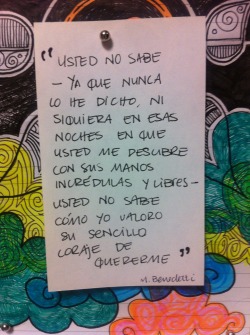 "USTED NO SABE
– YA QUE NUNCA
LO HE DICHO, NI
SIQUIERA EN ESAS
NOCHES EN QUE
USTED ME DESCUBRE
CON SUS MANOS
INCRÉDULAS Y LIBRES –
USTED NO SABE
CÓMO YO VALORO
SU SENCILLO
CORAJE DE
QUERERME"
M. Benedetti